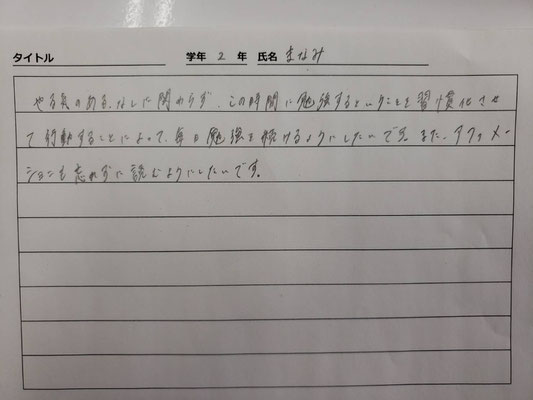 タイトル 学年 2 年 氏名 まなみ
やる気のある、なしに関わらず、この時間に勉強するということを習慣化させ
て行動することによって、毎日勉強を続けるようにしたいです。また、アファメー
ションも忘れずに読むようにしたいです。